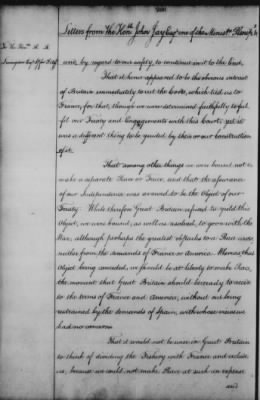 Letters from the Hon.ble John Jay Esq. one of the Minist.rs Plenip.y &c
To the Hon.ble R. R.
Livingston Esq.
and, by regard to our safety, to continue it to the end.
That it hence appeared to be the obvious interest
of Britain immediately to cut the Cords, which tied us to
France, for that, though we were determined faithfully to ful
fil our Treaty and Engagements with this Court, yet it
was a different thing to be guided by their or our Construction
of it.
That among other things we were bound not to
make a separate Peace or Truce, and that the assurance
of our Independence was avowed to be the Object of our
Treaty. While therefore Great Britain refused to yield this
Object, we were bound, as well as resolved, to go on with the
War, although perhaps the greatest obstacles to a Peace arose
neither from the demands of France or America. Whereas, that
Object being conceded, we should be at liberty to make Peace,
the moment that Great Britain should be ready to accede
to the terms of France and America, without our being
restrained by the demands of Spain, with whose views we
had no concern.
That it would not be wise in Great Britain
to think of dividing the Fishery with France and exclude
us, because we could not make Peace at such an expence
and